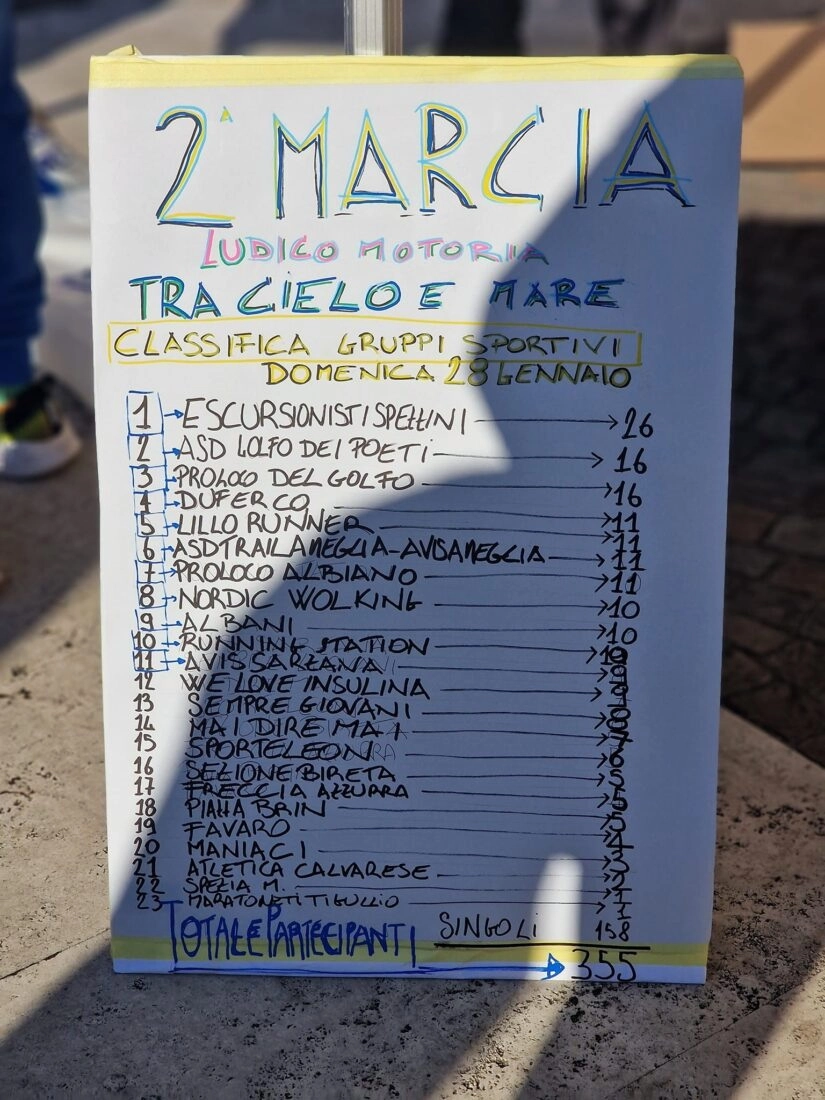 2ᴬ MARCIA
LUDICO MOTORIA
TRA CIELO E MARE
CLASSIFICA GRUPPI SPORTIVI
DOMENICA 28 GENNAIO
1 → ESCURSIONISTI SPEZZINI → 26
2 → ASD GOLFO DEI POETI → 16
3 → PROLOCO DEL GOLFO → 16
4 → DUFERCO → 11
5 → LILLO RUNNER → 11
6 → ASD TRAIL AMEGLIA-AVIS AMEGLIA → 11
7 → PROLOCO ALBIANO → 11
8 → NORDIC WOLKING → 10
9 → ALBANI → 10
10 → RUNNING STATION → 10
11 → AVIS SARZANA → 9
12 WE LOVE INSULINA → 9
13 SEMPRE GIOVANI → 8
14 MAI DIRE MAI → 7
15 SPORTELEONI → 6
16 SEZIONE BIRETA → 5
17 FRECCIA AZZURRA → 5
18 PIAZZA BRIN → 5
19 FAVARO → 4
20 MANIACI → 3
21 ATLETICA CALVARESE → 2
22 SPEZIA M. → 1
23 MARATONETI TIGULLIO → 1
SINGOLI 158
TOTALE PARTECIPANTI → 355